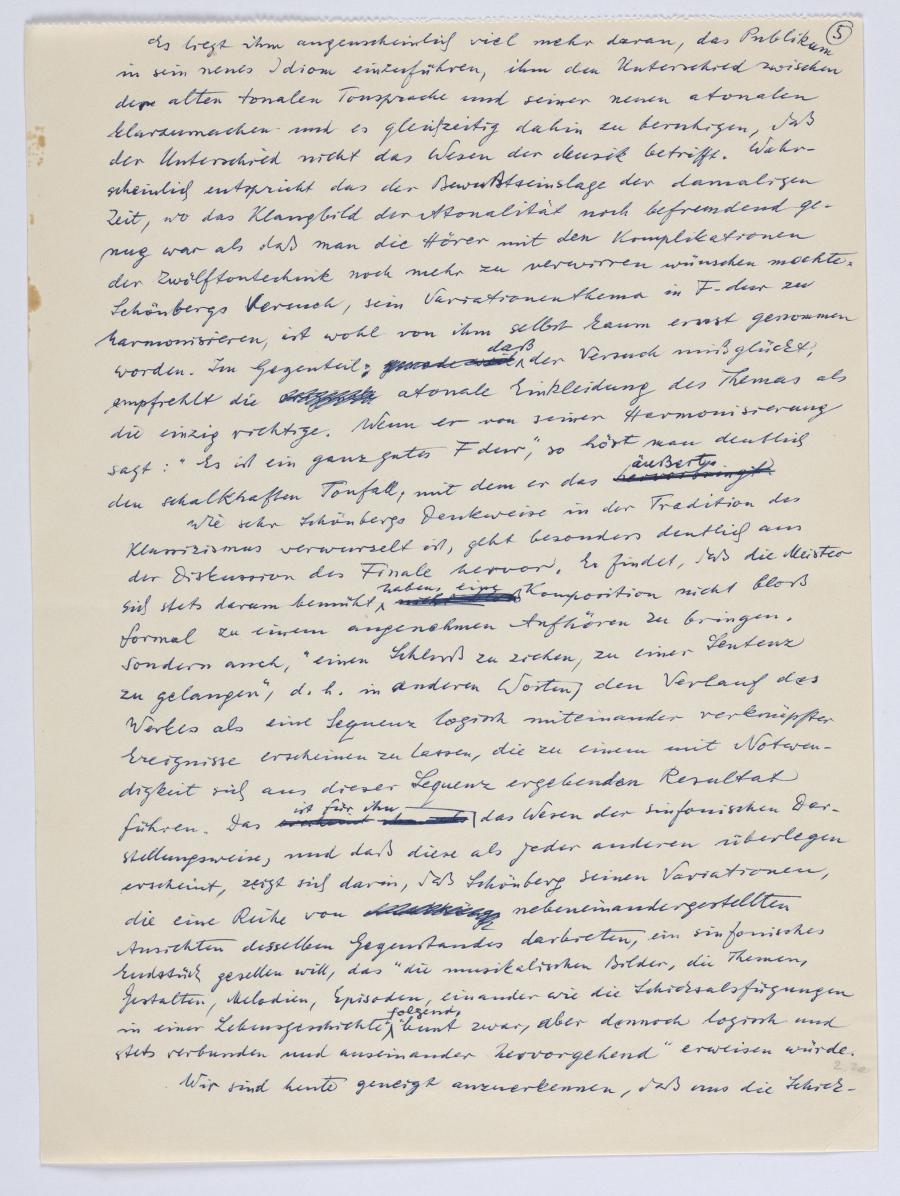 5
Es liegt ihm augenscheinlich viel mehr daran, das Publikum
in sein neues Idiom einzuführen, ihm den Unterschied zwischen
der alten tonalen Tonsprache und seiner neuen atonalen
klarzumachen und es gleichzeitig dahin zu beruhigen, daß
der Unterschied nicht das Wesen der Musik betrifft. Wahr-
scheinlich entspricht das der Bewußtseinslage der damaligen
Zeit, wo das Klangbild der Atonalität noch befremdend ge-
nug war als daß man die Hörer mit den Komplikationen
der Zwölftontechnik noch mehr zu verwirren wünschen mochte.
Schönbergs Versuch, sein Variationenthema in F-dur zu
harmonisieren, ist wohl von ihm selbst kaum ernst genommen
worden. Im Gegenteil: daß der Versuch mißglückt,
empfiehlt die atonale Einkleidung des Themas als
die einzig richtige. Wenn er von seiner Harmonisierung
sagt: "Es ist ein ganz gutes F dur", so hört man deutlich
den schalkhaften Tonfall, mit dem er das äußerte.
Wie sehr Schönbergs Denkweise in der Tradition des
Klassizismus verwurzelt ist, geht besonders deutlich aus
der Diskussion des Finale hervor. Er findet, daß die Meister
sich stets darum bemüht haben, eine Komposition nicht bloß
formal zu einem angenehmen Aufhören zu bringen.
sondern auch, "einen Schluß zu ziehen, zu einer Sentenz
zu gelangen", d. h. in anderen Worten, den Verlauf des
Werkes als eine Sequenz logisch miteinander verknüpfter
Ereignisse erscheinen zu lassen, die zu einem mit Notwen-
digkeit sich aus dieser Sequenz ergebenden Resultat
führen. Das ist für ihn das Wesen der sinfonischen Dar-
stellungsweise, und daß diese als jeder anderen überlegen
erscheint, zeigt sich darin, daß Schönberg seinen Variationen,
die eine Reihe von nebeneinandergestellten
Ansichten desselben Gegenstandes darbieten, ein sinfonisches
Endstück gesellen will, das "die musikalischen Bilder, die Themen,
Gestalten, Melodien, Episoden, einander wie die Schicksalsfügungen
in einer Lebensgeschichte" folgend, "bunt zwar, aber dennoch logisch und
stets verbunden und auseinander hervorgehend" erweisen würde.
Wir sind heute geneigt anzuerkennen, daß uns die Schick-